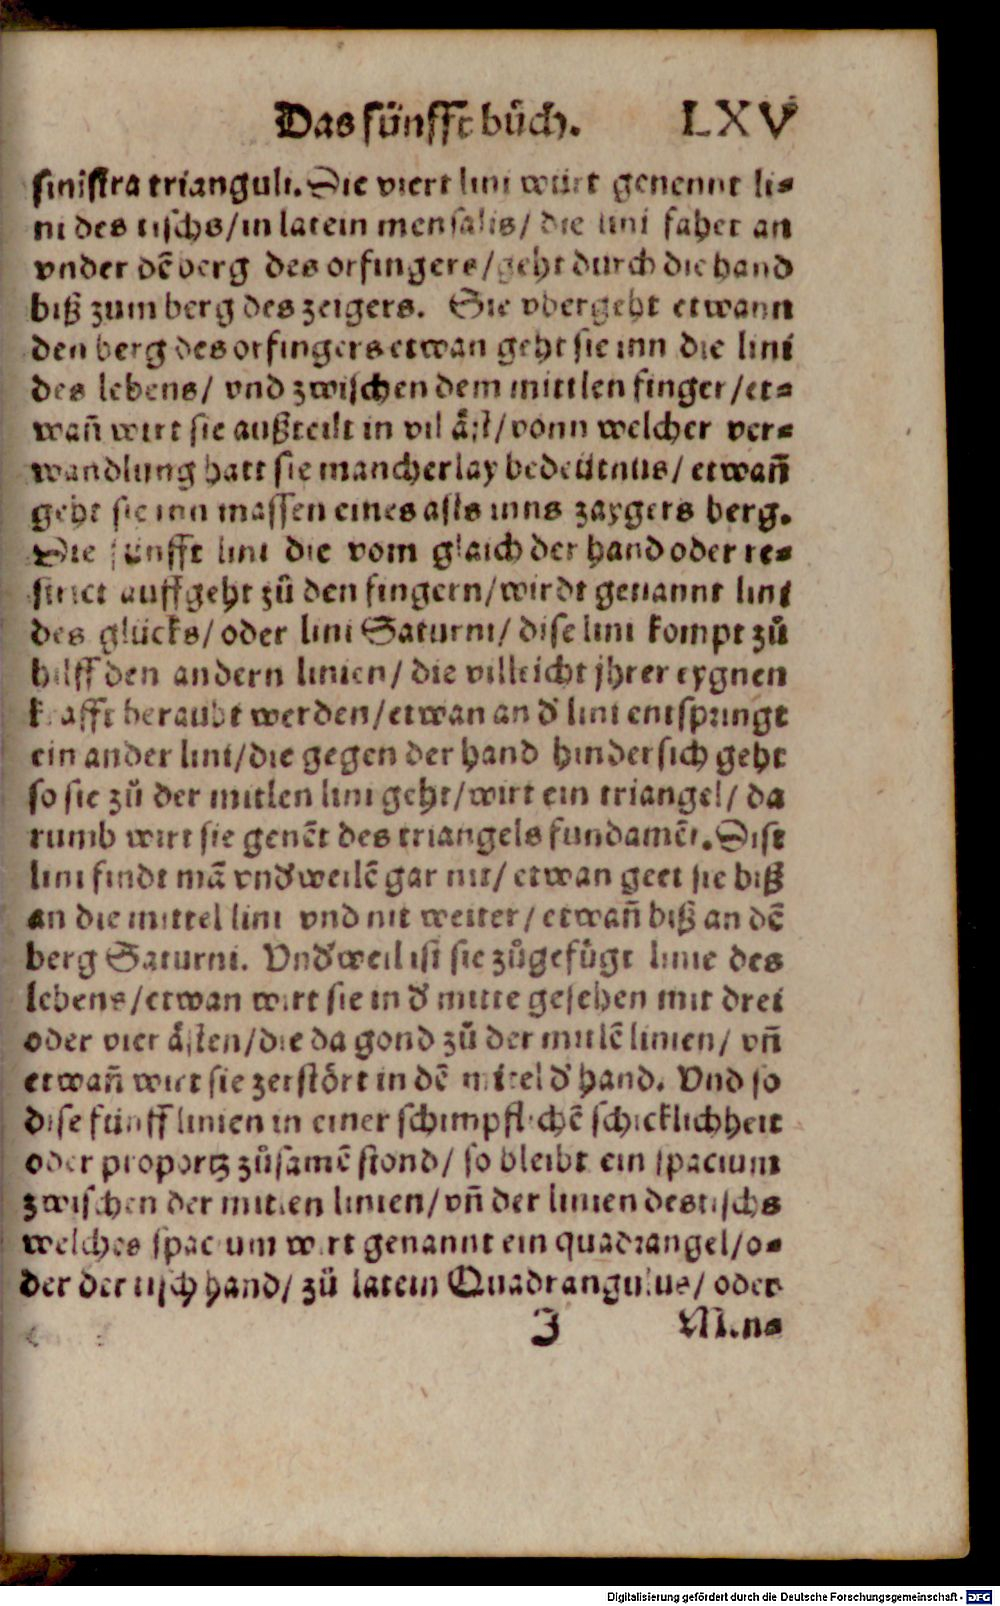 Das fünfft bůch. LXV
sinistra trianguli. Die viert lini würt genennt li-
ni des tischs/in latein mensalis/ die lini fahet an
vnder dē berg des orfingers/geht durch die hand
biß zum berg des zeigers. Sie vbergeht etwann
den berg des orfingers etwan geht sie inn die lini
des lebens/ vnd zwischen dem mittlen finger/et-
wañ wirt sie außteilt in vil åst/vonn welcher ver-
wandlung hatt sie mancherlay bedeütnus/ etwañ
geht sie inn massen eines asts inns zaygers berg.
Die fünfft lini die vom glaich der hand oder re-
strict auffgeht zů den fingern/wirdt genannt lini
des glücks/ oder lini Saturni/ dise lini kompt zů
hilff den andern linien/ die villeicht jhrer eygnen
krafft beraubt werden/etwan an d' lini entspringt
ein ander lini/die gegen der hand hindersich geht
so sie zů der mitlen lini geht/wirt ein triangel/ da
rumb wirt sie genēt des triangels fundamēt. Dise
lini findt mā vnd'weilē gar nit/ etwan geet sie biß
an die mittel lini vnd nit weiter/ etwañ biß an dē
berg Saturni. Vnd'weil ist sie zůgefügt linie des
lebens/etwan wirt sie in d' mitte gesehen mit drei
oder vier åsten/die da gond zů der mitlē linien/ vñ
etwañ wirt sie zerstört in dē mitel d' hand. Vnd so
dise fünff linien in einer schimpflichē schicklichheit
oder proportz zůsamē stond/ so bleibt ein spacium
zwischen der mitlen linien/vñ der linien des tischs
welches spacium wirt genannt ein quadrangel/o-
der der tisch hand/ zů latein Quadrangulus/ oder
J Men-
Digitalisierung gefördert durch die Deutsche Forschungsgemeinschaft - DFG